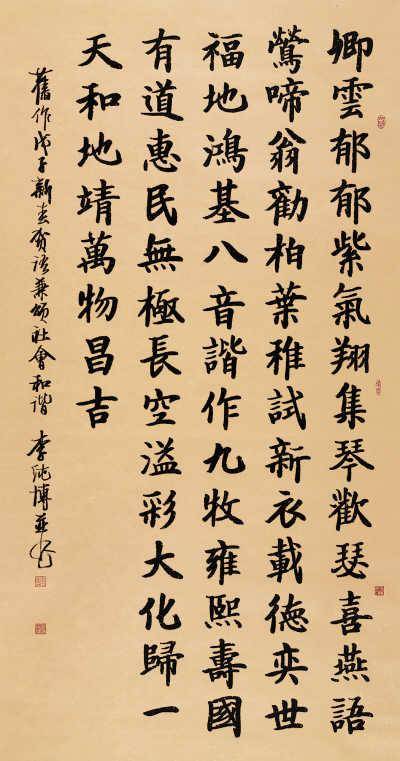 卿雲郁郁紫氣翔集琴歡瑟喜燕語
鶯啼翁勸柏葉稚試新衣載德奕世
福地鴻基八音諧作九牧雍熙壽國
有道惠民無極長空溢彩大化歸一
天和地靖萬物昌吉
舊作戊子新春賀語兼頌社會和諧 李 博並書